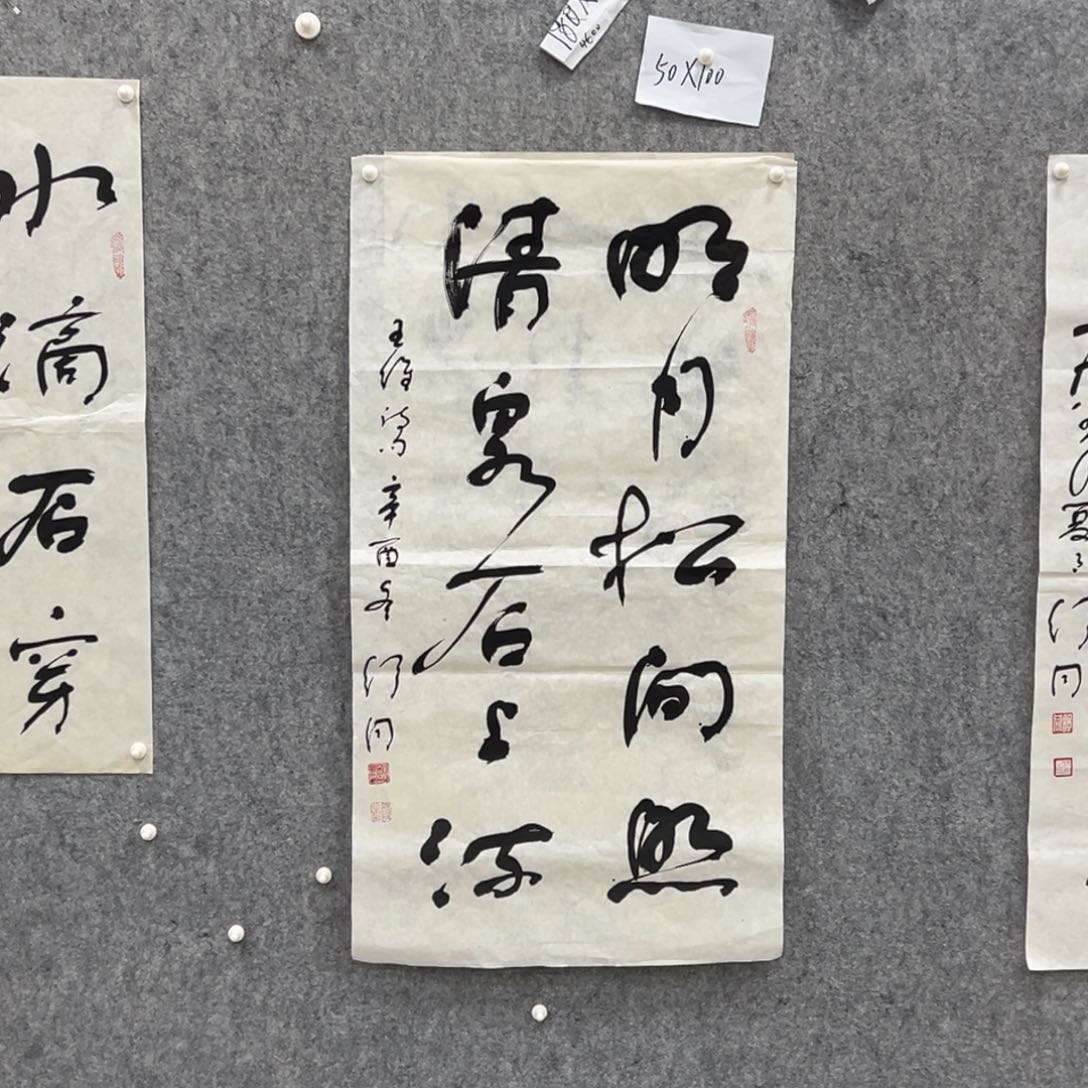 50X100
明月松间照
清泉石上流
王维诗 辛酉冬 舒同
水滴石穿
舒同